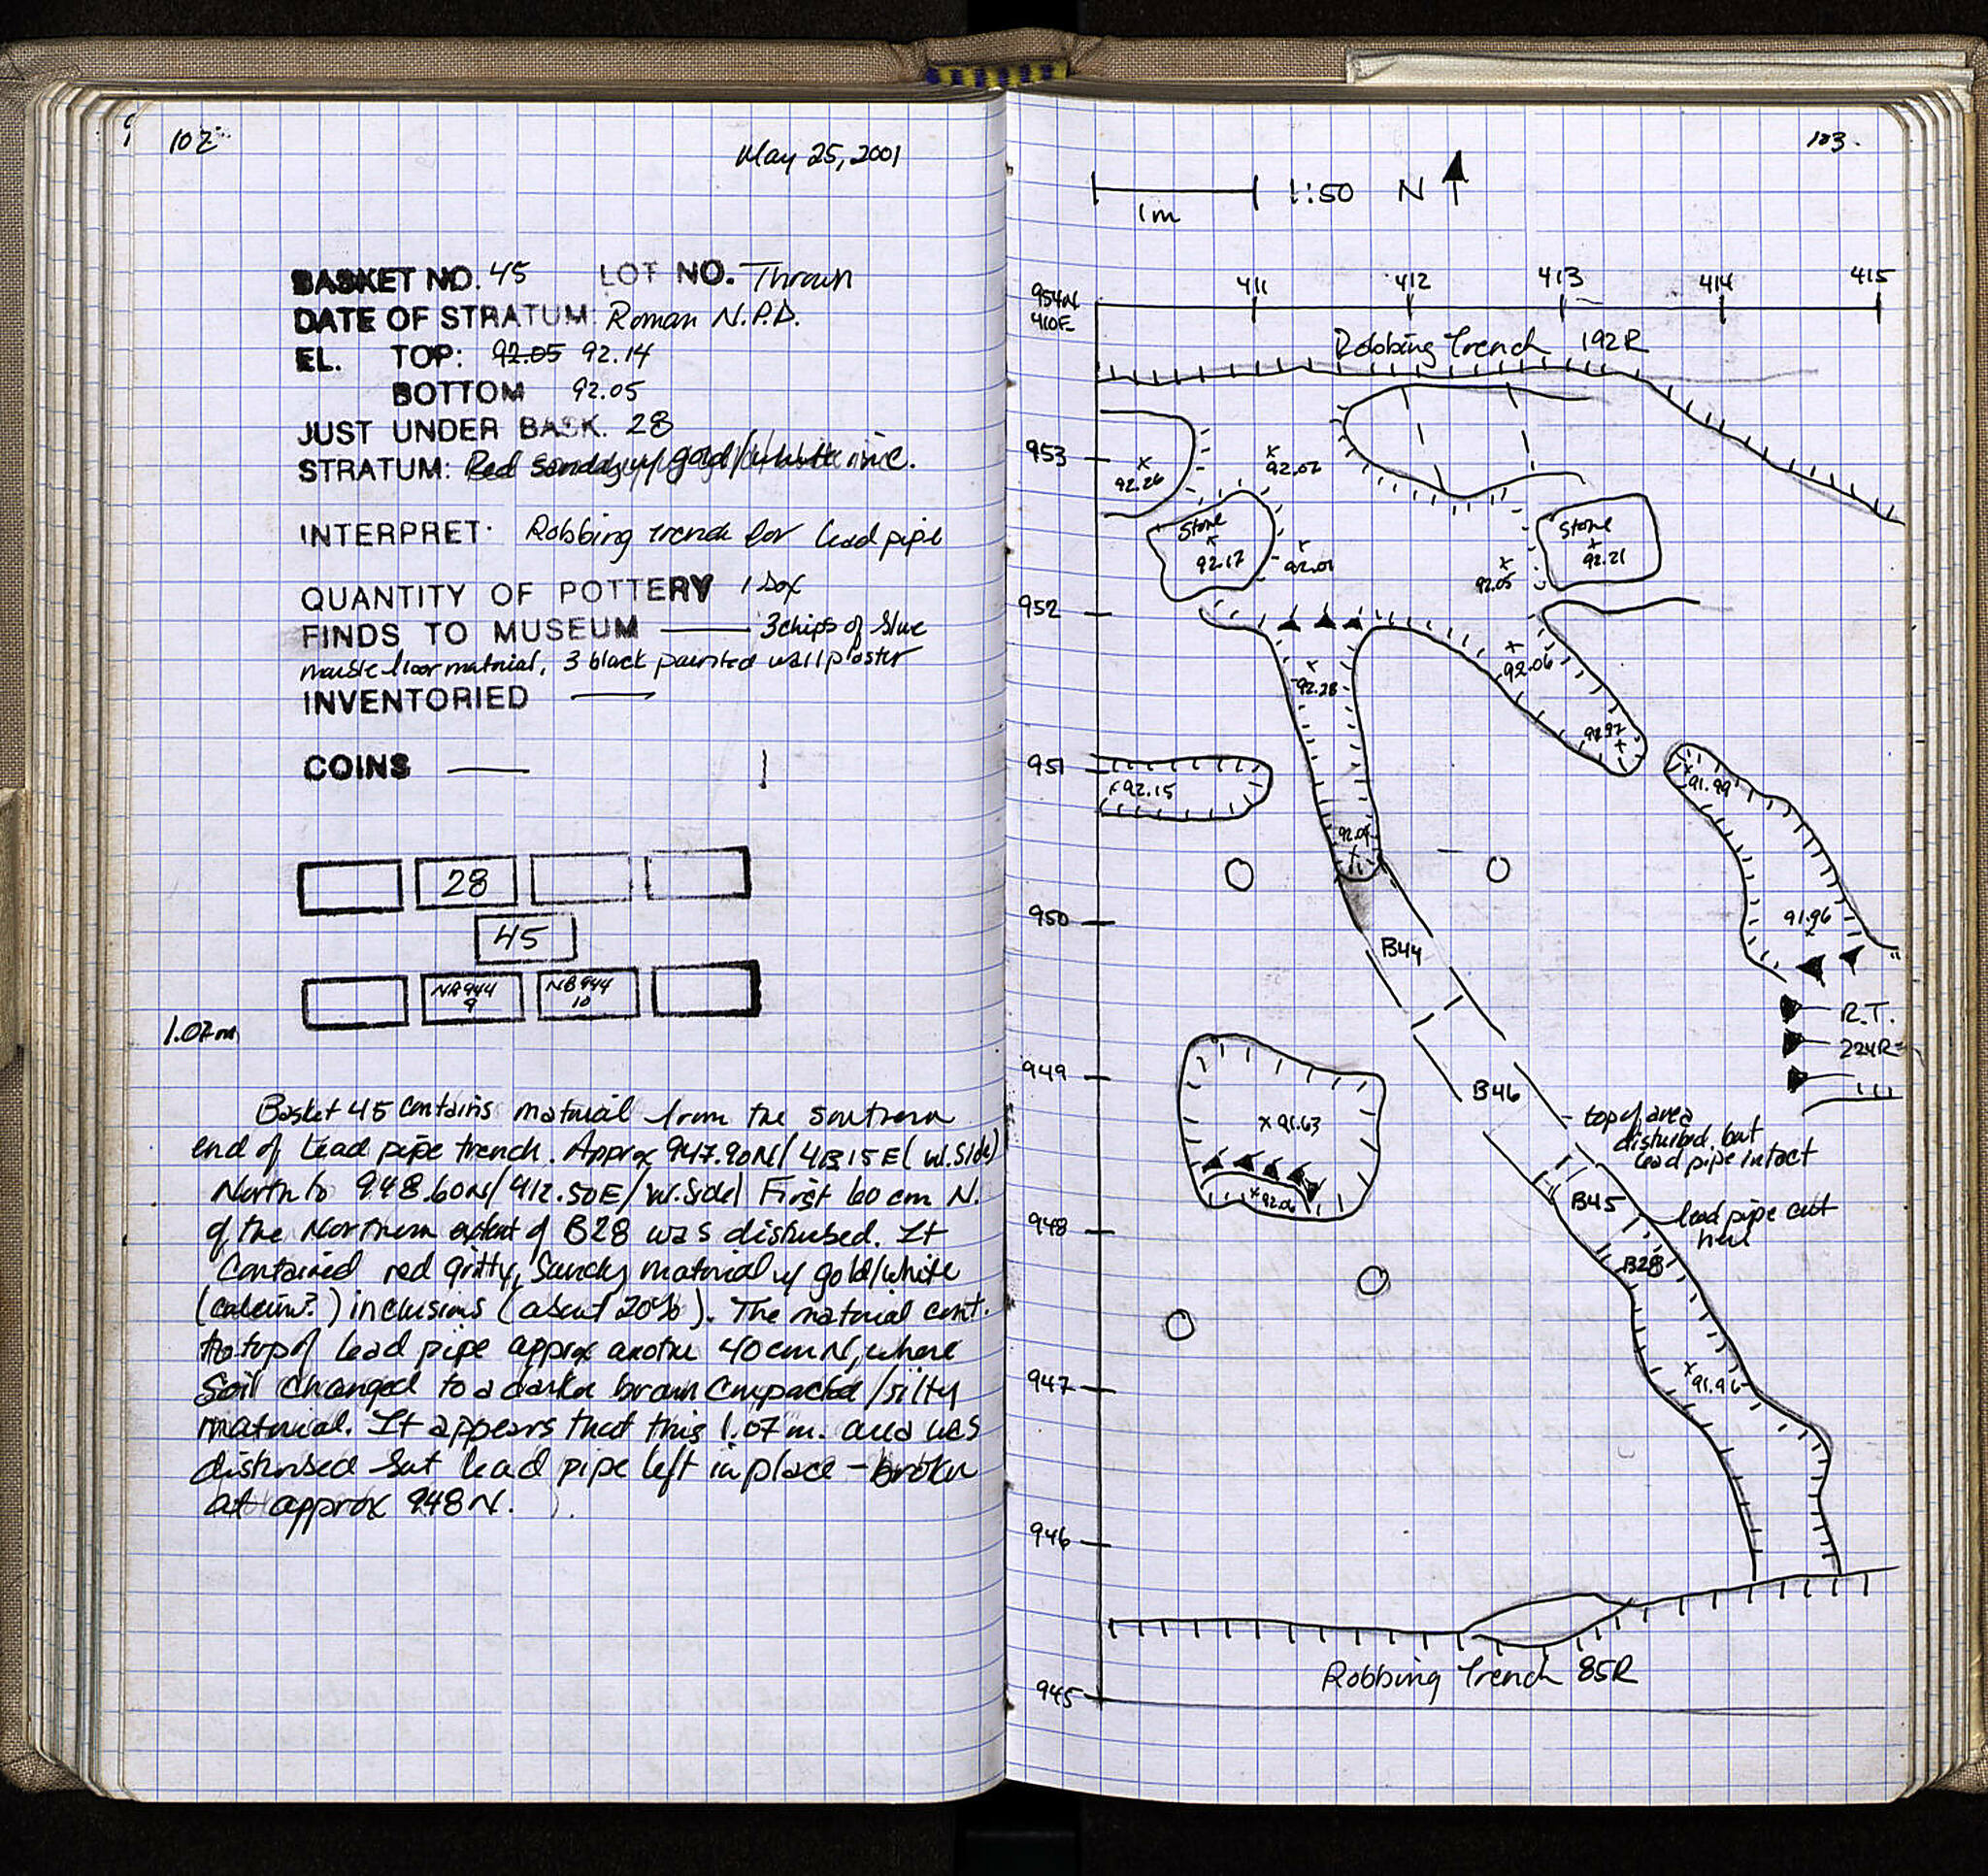 102
May 25, 2001
BASKET NO. 45 LOT NO. Thrown
DATE OF STRATUM: Roman N.P.D.
EL. TOP: 92.05 92.14
BOTTOM 92.05
JUST UNDER BASK. 28
STRATUM: Red sandy w/ gold/white
INTERPRET: Robbing trench for lead pipe
QUANTITY OF POTTERY 1 box
FINDS TO MUSEUM — 3 chips of blue
marble floor material, 3 black painted wall plaster
INVENTORIED —
COINS —
28
45
NB944 9 NB944 10
1.07m
Basket 45 contains material from the southern
end of lead pipe trench. Approx 947.90N/413.15E (W. Side)
North to 948.60N/412.50E/W. Side) First 60 cm N.
of the Northern extent of B28 was disturbed. It
contained red gritty, sandy material w/ gold/white
(calcium?) inclusions (about 20%). The material cont.
to top of lead pipe approx another 40 cm N, where
soil changed to a darker brown compacted/silty
material. It appears that this 1.07 m. area was
disturbed but lead pipe left in place - broken
at approx 948N.
103.
1m 1:50 N
954N
410E
411 412 413 414 415
Robbing Trench 192R
953
92.26
92.02
Stone
92.17
92.01
92.05
Stone
92.21
952
92.28
92.06
951
92.15
91.99
950
91.96
B44
R.T.
224R
949
B46
91.63
top of area
disturbed, but
lead pipe intact
B45
948
lead pipe cut
here
B28
947
91.96
946
Robbing Trench 85R
945